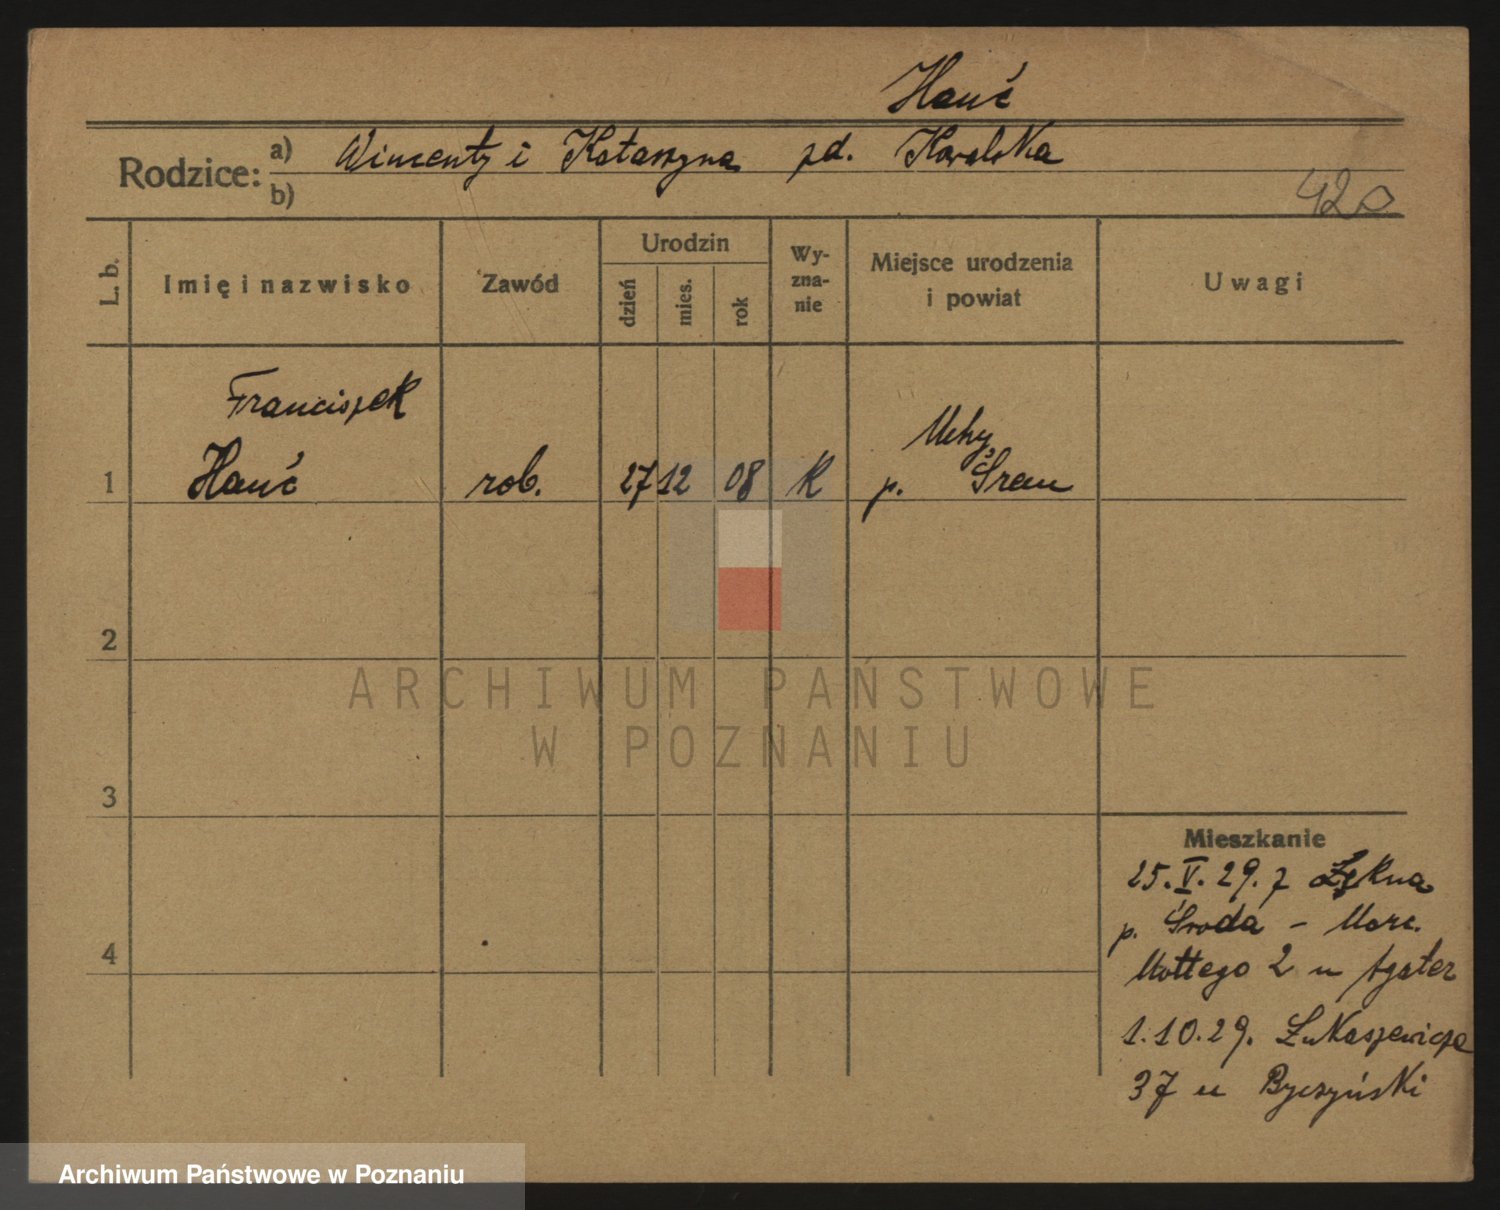 Hauć
Rodzice: a) Wincenty i Katarzyna pd. Kowalska
b)
420
L. b.
Imię i nazwisko
Zawód
Urodzin
dzień
mies.
rok
Wy-
zna-
nie
Miejsce urodzenia
i powiat
Uwagi
Franciszek
1 Hauć rob. 27 12 08 K
Mchy,
p. Śrem
2
3
4
Mieszkanie
25.V.29. z Łękna
p. Środa - Marc.
Mottego 2 u
1.10.29. Łukaszewicza
37 u Byczyński
ARCHIWUM PAŃSTWOWE
W POZNANIU
Archiwum Państwowe w Poznaniu